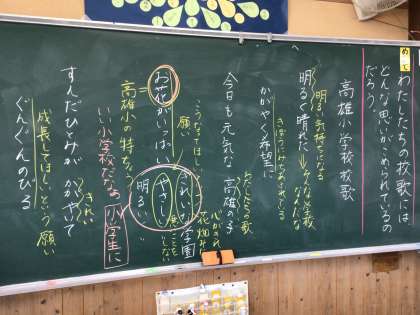 めあて
わたしたちの校歌には
どんな思いがこめられているの
だろう。
高雄小学校校歌
明るい気持ちになる
明るく晴れた
そんな学校
かがやく希望に
わたしたちの歌
今日も元気な 高雄の子
こうなってほしい
願い
お花がいっぱい
高雄小の特ちょう
きれいな学園
花畑
心がきれい
やさしい
明るい
いい小学校だなあ
小学生に
すんだひとみが かがやいて
きれい
成長してほしいという願い
ぐんぐんのびる